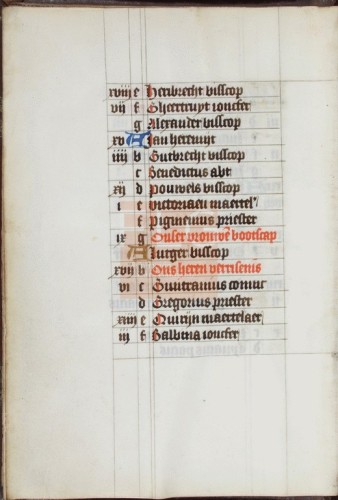 xviij e Heribrecht bisscop
vij f Gheertruyt ioncfer
g Alexander bisscop
xv A Jan heremyt
iiij b Gutbrecht bisscop
c Benedictus abt
xij d Pouwels bisscop
i e Victoriaen maertel'
f Pigmenius priester
ix g Onser vrouwē bootscap
A Lutger bisscop
xvij b Ons heren verrisenis
vi c Guntramus coninc
d Gregorius priester
xiiij e Quirijn maertelaer
iij f Balbina ioncfer